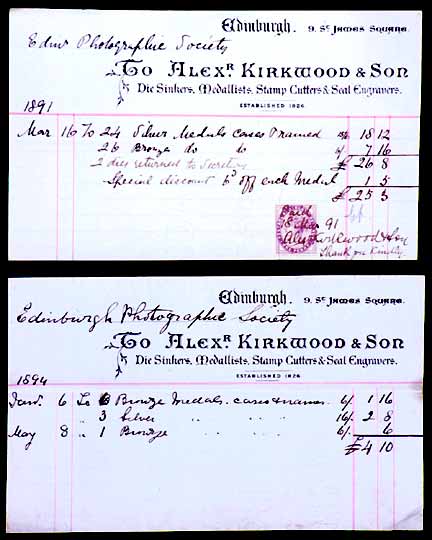 Edinburgh. 9, St. James Square.
Edinr Photographic Society
To Alexr. Kirkwood & Son
Die Sinkers, Medallists, Stamp Cutters & Seal Engravers.
ESTABLISHED 1826
1891
Mar 16 To 24 Silver Medals cases & named 15/6 18 12
26 Bronze do to 6/ 7 16
2 dies returned to Secretary £ 26 8
Special discount 6d off each Medal 1 5
£ 25 3
Paid
18 Mar 91
Alex Kirkwood & Son
Thank you kindly
Edinburgh. 9, St. James Square.
Edinburgh Photographic Society
To Alexr. Kirkwood & Son
Die Sinkers, Medallists, Stamp Cutters & Seal Engravers.
ESTABLISHED 1826
1894
Janr. 6 To 6 Bronze Medals. cases & names 6/ 1 16
" 3 Silver " " " 16/ 2 8
May 8 " 1 Bronze 6/. 6
£4 10